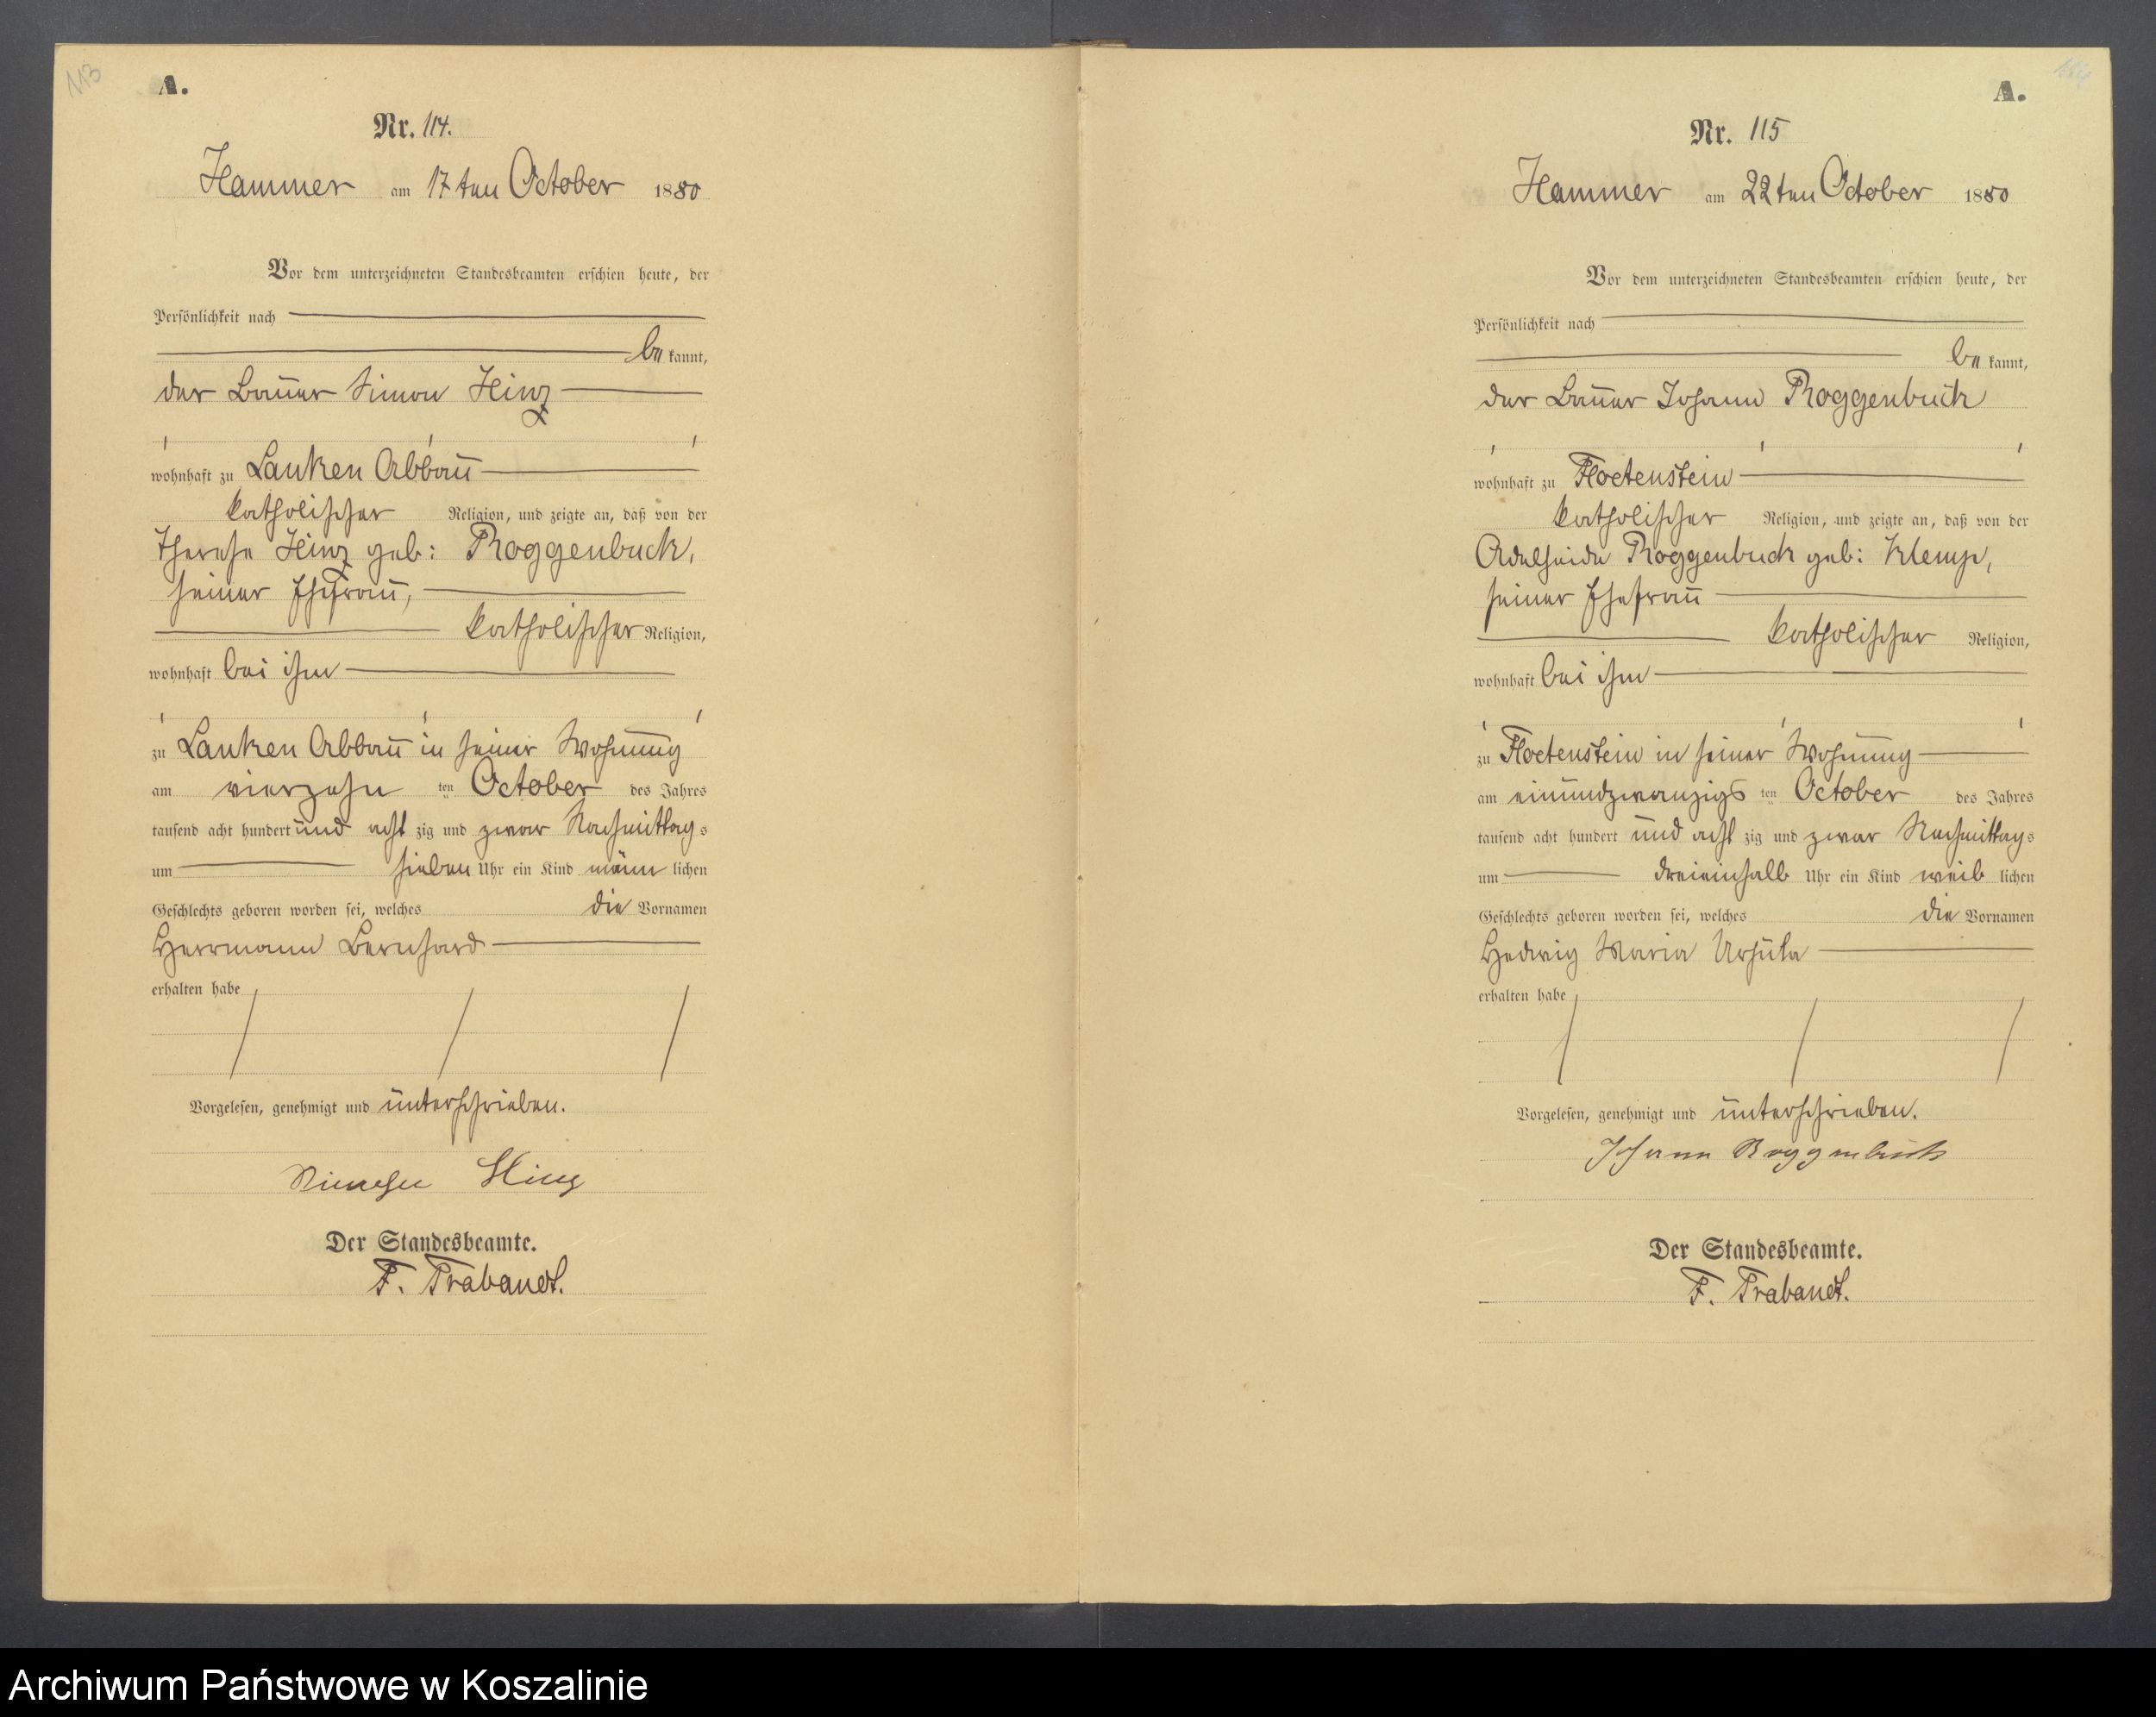 113
A.
Nr. 114.
Hammer am 17ten October 1880
Vor dem unterzeichneten Standesbeamten erschien heute, der
Persönlichkeit nach
bekannt,
der Bauer Simon Hinz
wohnhaft zu Lanken Abbau
katholischer Religion, und zeigte an, daß von der
Therese Hinz geb: Roggenbuck,
seiner Ehefrau,
katholischer Religion,
wohnhaft bei ihm
zu Lanken Abbau in seiner Wohnung
am vierzehnten October des Jahres
tausend acht hundert und achtzig und zwar Nachmittags
um sieben Uhr ein Kind männlichen
Geschlechts geboren worden sei, welches die Vornamen
Herrmann Bernhard
erhalten habe
Vorgelesen, genehmigt und unterschrieben.
Hinz
Der Standesbeamte.
F. Trabandt.
A.
Nr. 115
Hammer am 22ten October 1880
Vor dem unterzeichneten Standesbeamten erschien heute, der
Persönlichkeit nach
bekannt,
der Bauer Johann Roggenbuck
wohnhaft zu Floetenstein
katholischer Religion, und zeigte an, daß von der
Adelheide Roggenbuck geb: Klemp,
seiner Ehefrau
katholischer Religion,
wohnhaft bei ihm
zu Floetenstein in seiner Wohnung
am einundzwanzigsten October des Jahres
tausend acht hundert und achtzig und zwar Nachmittags
um dreieinhalb Uhr ein Kind weiblichen
Geschlechts geboren worden sei, welches die Vornamen
Hedwig Maria Ursula
erhalten habe
Vorgelesen, genehmigt und unterschrieben.
Johann Roggenbuck
Der Standesbeamte.
F. Trabandt.
Archiwum Państwowe w Koszalinie